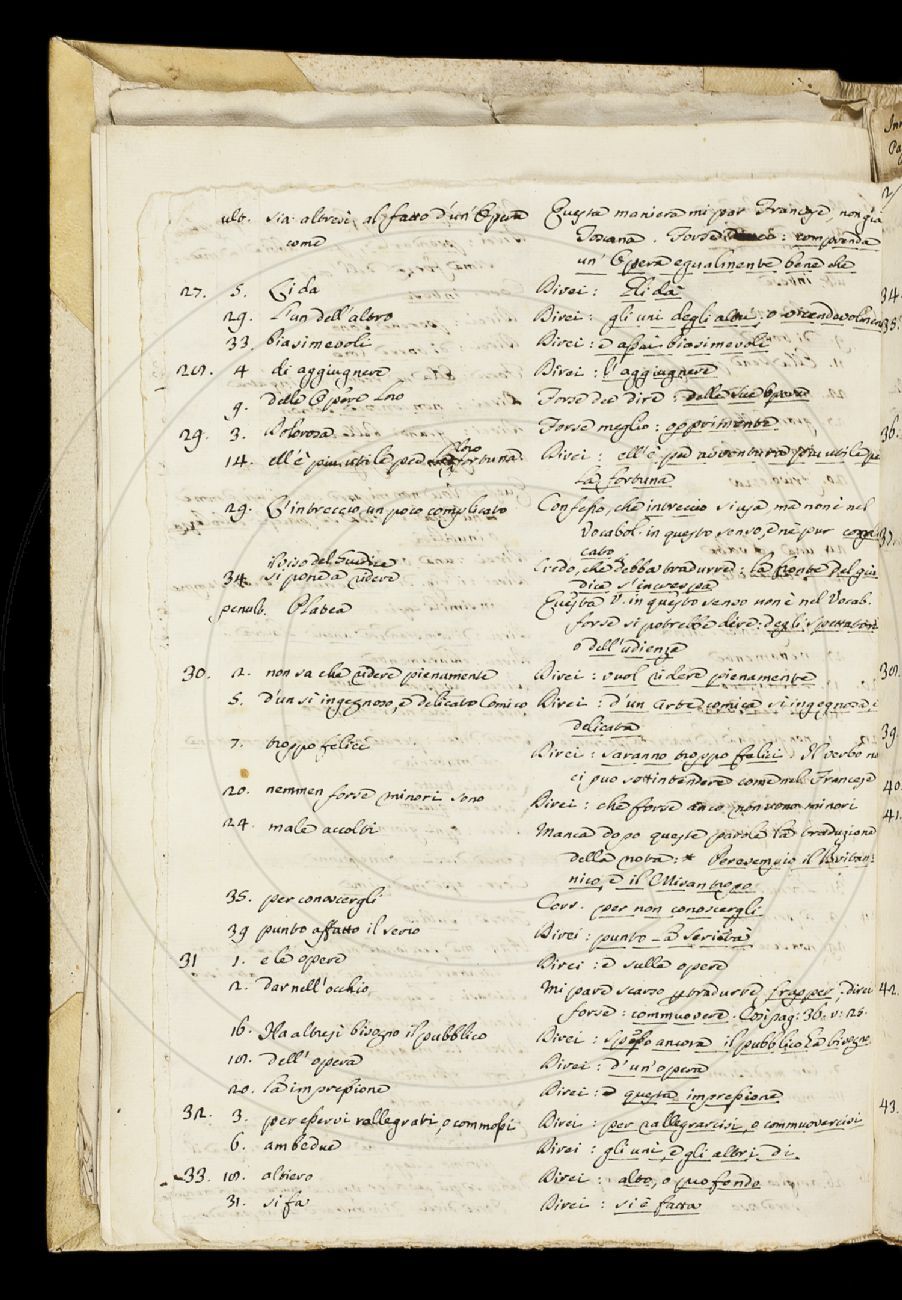 ult. sia altresì al fatto d'un'Opera Questa maniera mi par Francese, non già
come Toscana. Forse : comprenda
un'Opera egualmente bene che
27. 5. Ci da Direi: Eli da
29. L'un dell'altro Direi: gli uni degli altri, o vicendevolmen
33. biasimevoli Direi: e assai biasimevoli
28. 4 di aggiugnere Direi: l'aggiugnere
9. delle Opere loro Forse dee dire: delle sue Opere
29. 3. Dolorosa Forse meglio: opprimente
14. ell'è piu utile per loro fortuna Direi: ell'è per avventura piu utile pe
la fortuna
29. L'intreccio, un poco complicato Confesso, che intreccio si usa, ma non è nel
Vocabol. in questo senso, e nè pur compli
cato
34. il viso del Giudice si pone a ridere Credo, che debba tradurre: la fronte del giu
dice s'increspa
penult. Platea Questa V. in questo senso non è nel Vocab.
forse si potrebbe dire: degli spettatori
o dell'udienza
30. 2. non sa che ridere pienamente Direi: vuol ridere pienamente
5. d'un si ingegnoso, e delicato Comico Direi: d'un Arte comica si ingegnosa, e
delicata
7. troppo felici Direi: saranno troppo felici. Il verbo no
ci puo sottintendere come nel Francese
20. nemmen forse minori sono Direi: che forse anco non sono minori
24. male accolti Manca dopo queste parole la traduzione
della nota: * Per esempio il Britan:
nico, e il Misantropo
35. per conoscergli Corr. per non conoscergli
39 punto affatto il serio Direi: punto la serietà
31 1. e le opere Direi: e sulle opere
2. dar nell'occhio Mi pare scarso p tradurre frapper; direi
forse: commuovere. Così pag: 36. v: 25.
16. Ha altresi bisogno il pubblico Direi: Spesso ancora il pubblico ha bisogno
18. dell'opera Direi: d'un'opera
20. la impressione Direi: e questa impressione
32. 3. per esservi rallegrati, o commossi Direi: per rallegrarcisi, o commuovercisi
6. ambedue Direi: gli uni, e gli altri di
33. 18. altiero Direi: alto, o profondo
31. si fa Direi: si è fatta